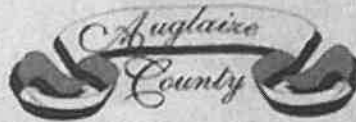 Auglaize
County